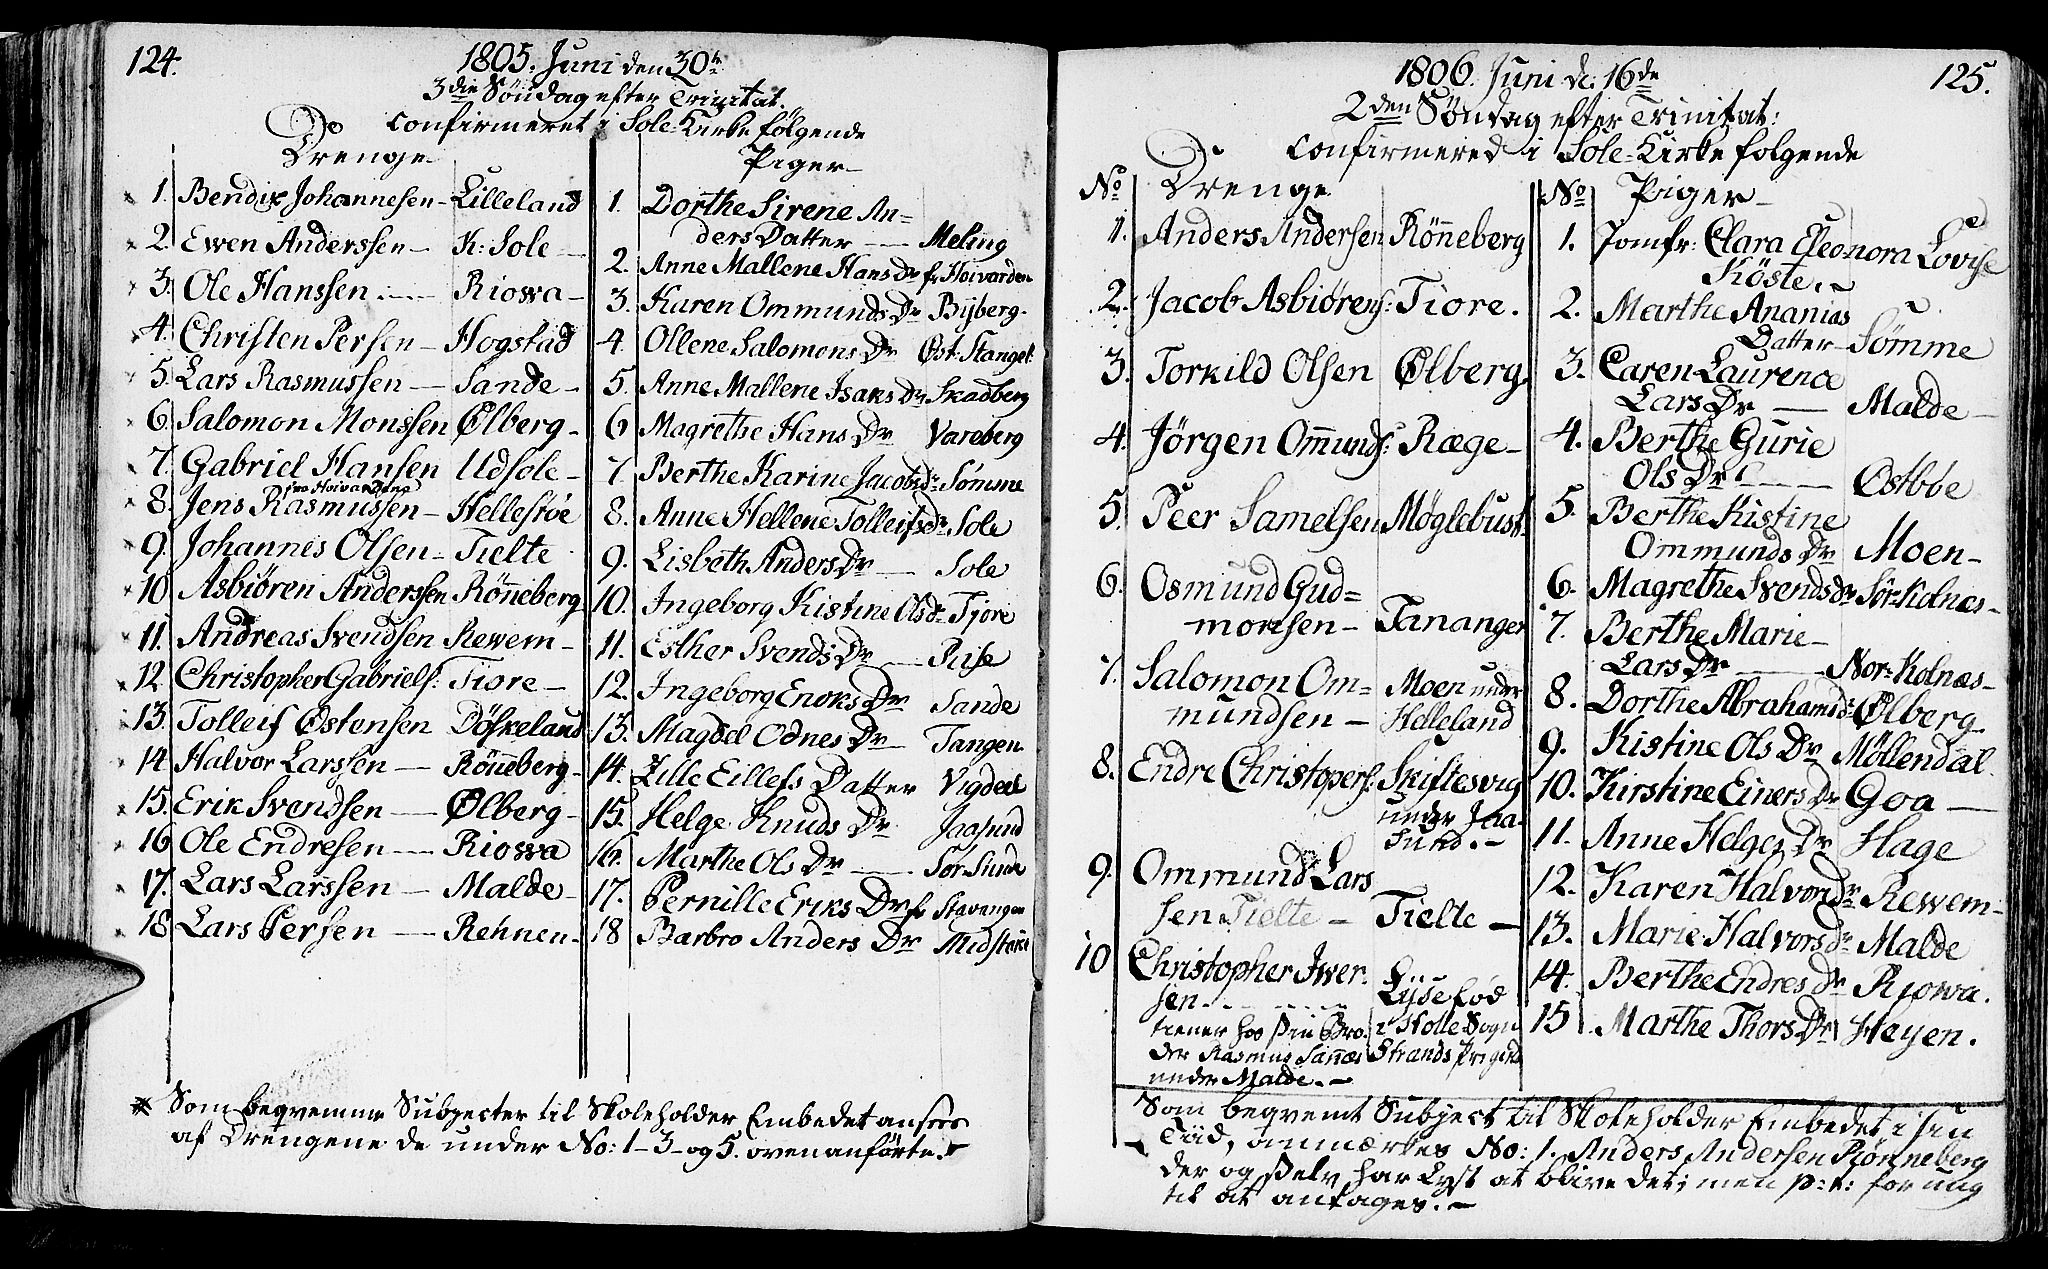 124.
1805. Juni den 30te
3die Söndag efter Trinitat.
Confirmeret i Sole-Kirke følgende
Drenge
1. Bendix Johannesen - Lilleland
2. Ewen Anderssen - K: Sole -
3. Ole Hanssen - Riowa -
4. Christen Persen - Hogstad
5. Lars Rasmussen - Sande -
6. Salomon Monssen Ølberg -
7. Gabriel Hansen Udsole -
fra Hoivardene
8. Jens Rasmussen - Hellestöe
9. Johannes Olsen - Tielte
10. Asbiören Anderssen Rönneberg
11. Andreas Svendsen Rewem -
12. Christopher Gabriels: Tiore -
13. Tolleif Østensen Döskeland
14. Halvor Larssen - Rönneberg -
15. Erik Svendsen - Ølberg -
16. Ole Endresen - Riowa
17. Lars Larssen - Malde -
18. Lars Persen - Rehnen -
Piger -
1. Dorthe Sirene An=
ders Datter - Meling
2. Anne Mallene Hans Dr fr Hoivarden
3. Karen Ommunds Dr Bijberg -
4. Ollene Salomons Dr Øst-Stangel:
5. Anne Mallene Isaks Dr Skadberg
6. Magrethe Hans Dr Vareberg
7. Berthe Karine Jacobsdr Sömme
8. Anne Hellene Tolleifsdr Sole
9. Lisbeth Anders Dr - Sole
10. Ingeborg Kistine Olsdr Tjore
11. Esther Svends Dr - Risse
12. Ingeborg Enoks Dr Sande
13. Magdel Odnes Dr Tangen
14. Zille Eillefs Datter Vigdeel
15. Helge Knuds Dr Jaasund
16. Marthe Ols Dr - Sör-Sunde
17. Pernille Eriks Dr fr Stavanger
18. Barbro Anders Dr Midstöke
* Som beqvemme Subjecter til Skoleholder Embedet ansees
af Drengene de under No: 1-3- og 5. ovenanförte.
125.
1806. Juni d: 16de
2den Söndag efter Trinitat:
Confirmered i Sole-Kirke folgende
No Drenge
1. Anders Andersen Rönneberg
2. Jacob Asbiörens: Tiore.
3. Torkild Olsen Ølberg
4. Jörgen Ommunds: Ræge -
5. Peer Samelsen Möglebust
6. Osmund Gud=
monsen - Tananger
7. Salomon Om= Moen under
mundsen - Helleland
8. Endre Christopers: Skiftesvig
under Jaa-
sund. -
9. Ommund Lars
sen Tielte - Tielte -
10 Christopher Iwer-
sen - Lyse fød
tiener hos sin Bro- i Holle Sogn
der Rasmus Sannæs Strands Prigield
under Malde. -
No Piger -
1. Jomfr: Clara Eleonora Lovise
Köste. -
2. Marthe Ananias
Datter - Sömme
3. Caren Laurence
Lars Dr - Malde -
4. Berthe Gurie
Ols Dr - Østböe
5. Berthe Kistine
Ommunds Dr Moen -
6. Magrethe Svendsdr Sör-Kolnæs -
7. Berthe Marie -
Lars Dr - Nor-Kolnæs -
8. Dorthe Abrahamsdr Ølberg
9. Kistine Ols Dr Möllendal
10. Kirstine Einers Dr Goa -
11. Anne Helges Dr Hage
12. Karen Halvorsdr Rewem -
13. Marie Halvorsdr Malde
14. Berthe Endres Dr Riowa.
15. Marthe Thors Dr Heyen.
Som beqvemt Subject til Skoleholder Embedet i sin
Tiid, anmærkes No: 1. Anders Andersen Rönneberg
der og selv har Lyst at blive det; men p: t: for ung
til at antages. -